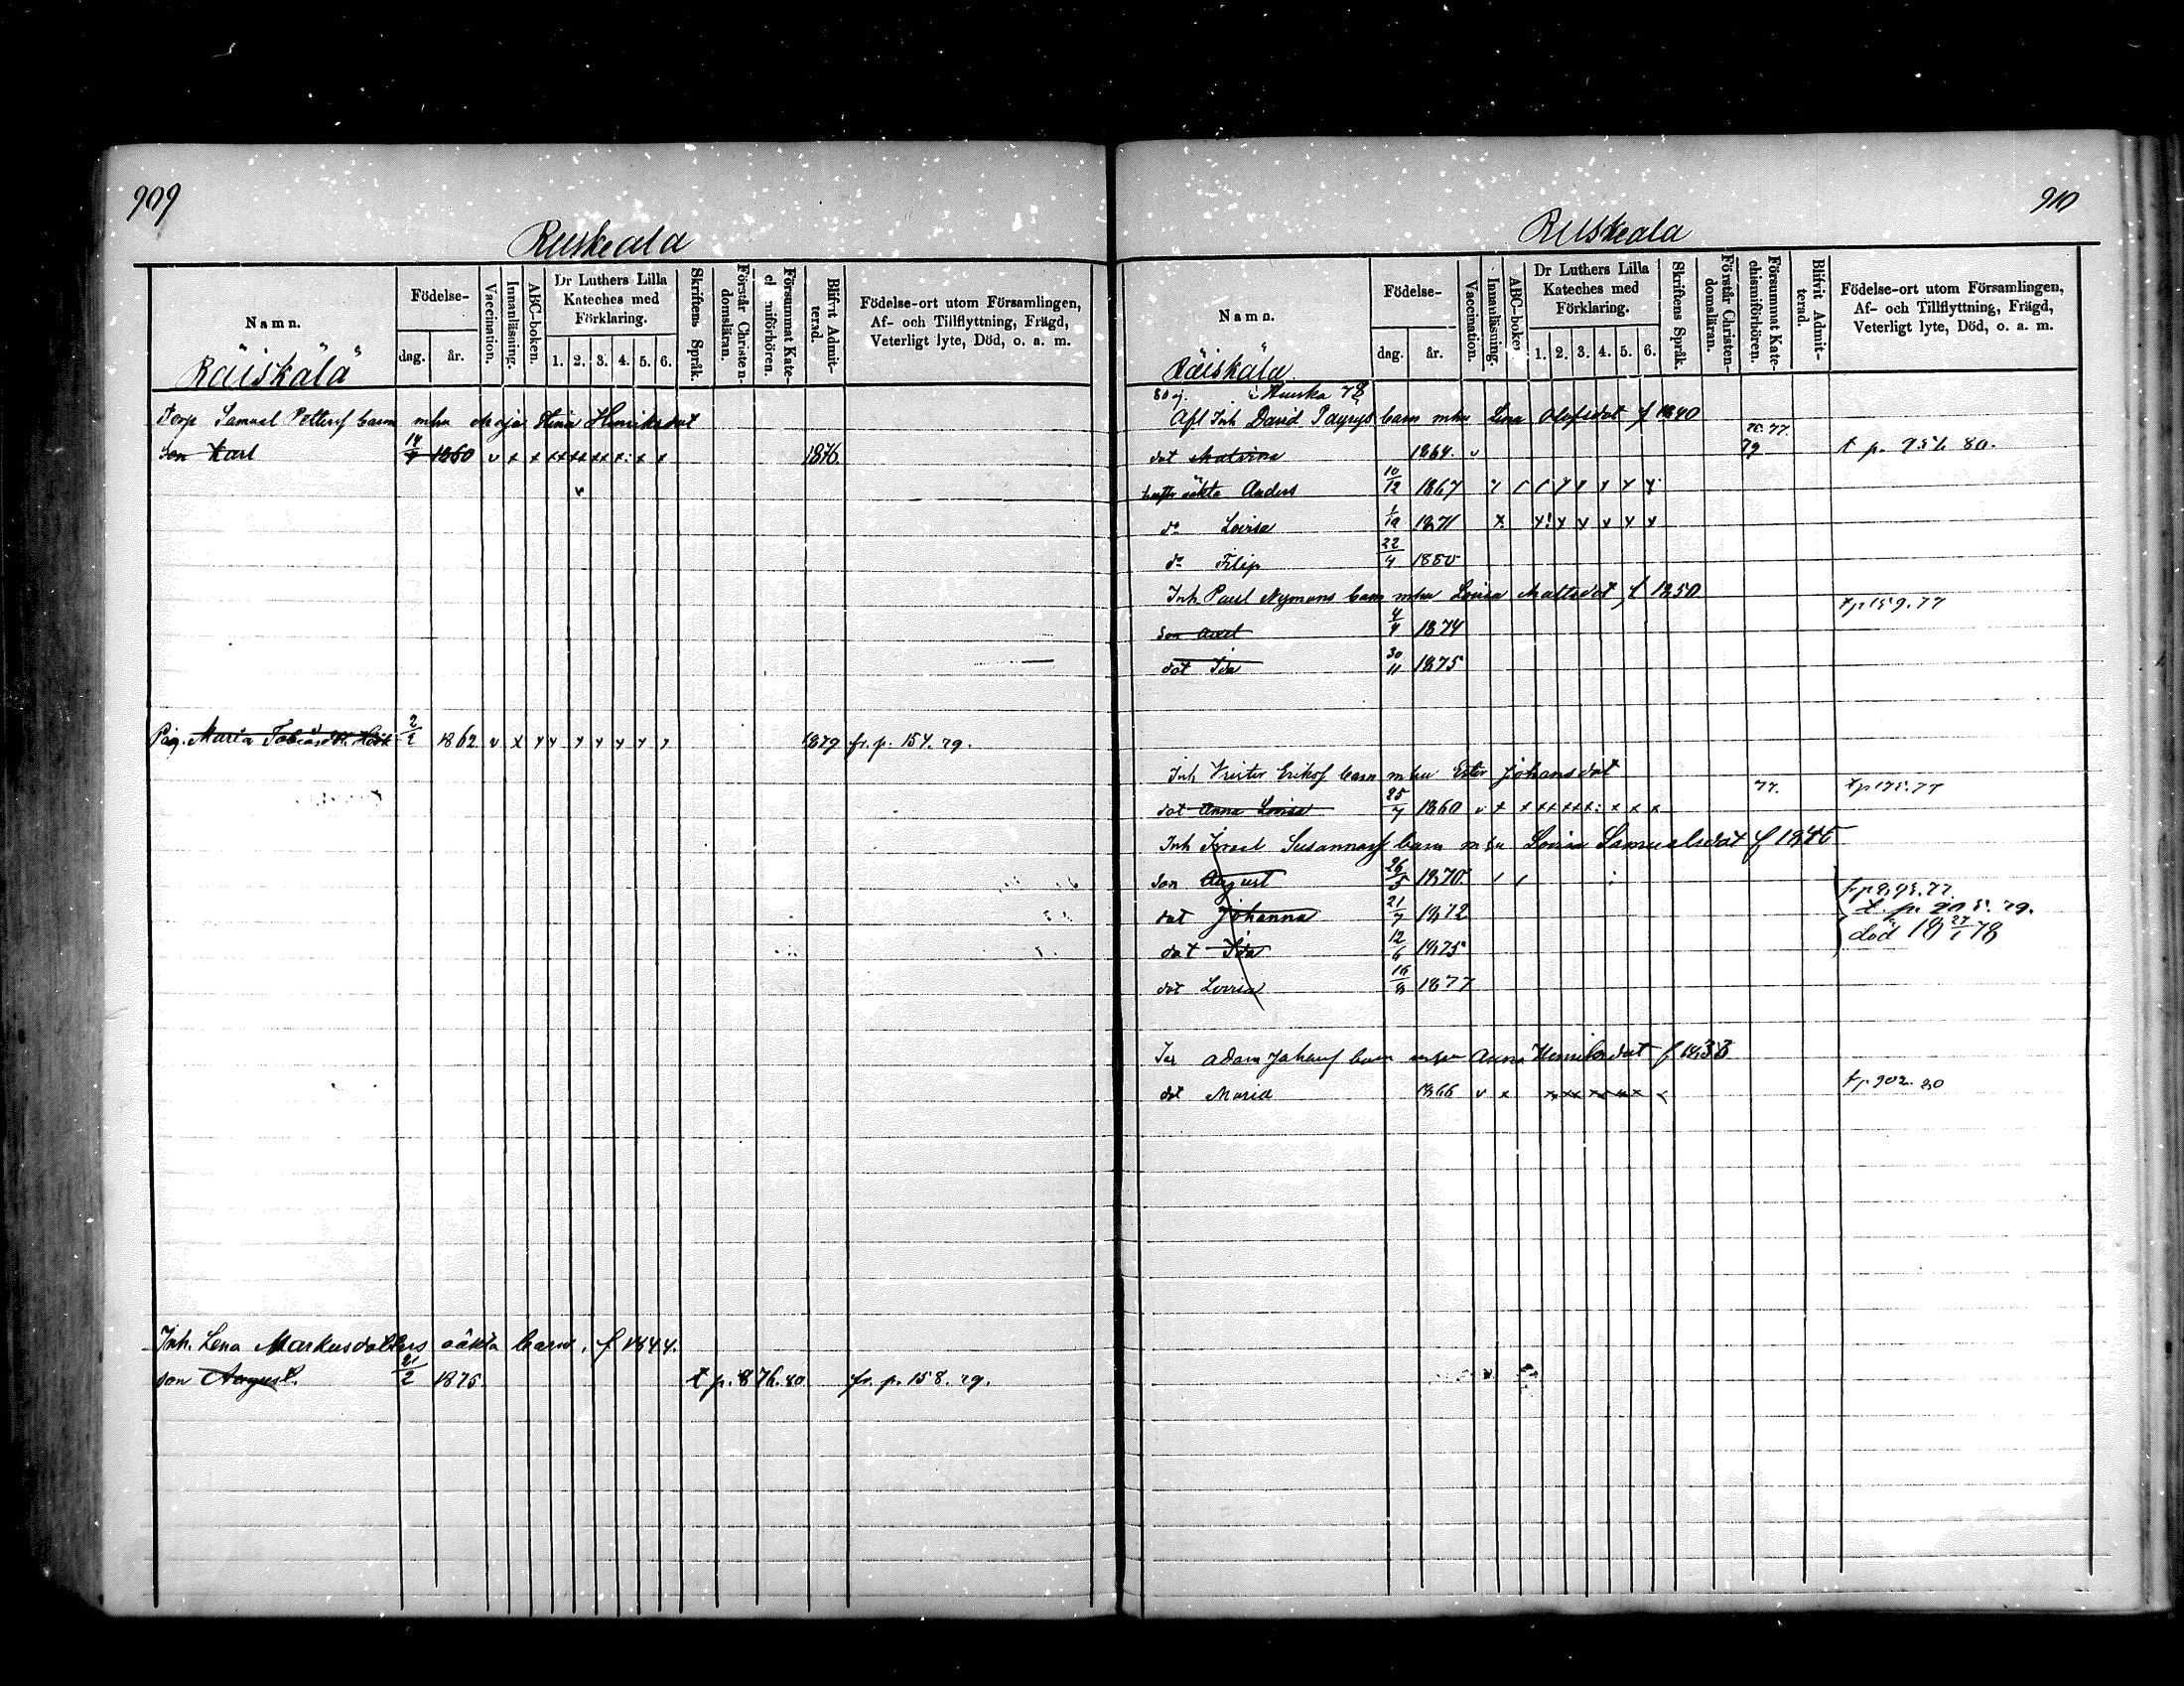 909
Ruskeala
Namn.
Räiskälä
Födelse-
dag.
år.
Vaccination.
Innanläsning.
ABC-boken.
Dr Luthers Lilla
Kateches med
Förklaring.
1. 2. 3. 4. 5. 6.
Skriftens Språk.
Förstår Christen-
domsläran.
Försummat Kate-
chismiförhören.
Blifvit Admit-
terad.
Födelse-ort utom Församlingen,
Af- och Tillflyttning, Frägd,
Veterligt lyte, Död, o. a. m.
Torp Samuel Petters barn mhu Maja Stina Henriksdot
son Karl 1860 v x x xx xx xx x: x x 1876.
v
Pig. Maria Tobiasdot. 2/2 1862 v x y y y y y y y 1879 fr. p. 154. 79.
Inh. Lena Markusdotters oäkta barn, f 1844.
son August. 21/2 1875 t p. 876. 80 fr. p. 158. 79.
910
Ruskeala
Namn.
Räiskälä
Födelse-
dag.
år.
Vaccination.
Innanläsning.
ABC-boken
Dr Luthers Lilla
Kateches med
Förklaring.
1. 2. 3. 4. 5. 6.
Skriftens Språk.
Förstår Christen-
domsläran.
Försummat Kate-
chismiförhören.
Blifvit Admit-
terad.
Födelse-ort utom Församlingen,
Af- och Tillflyttning, Frägd,
Veterligt lyte, Död, o. a. m.
Afl Inh David barn mhu Lena Olofsdot f 1840
77.
dot Malvina 1864. v 79 t p. 80.
oäkta Anders 10/12 1867
do Lovisa 1871
do Filip 22/4 1880
Inh. Paul Nymans barn mhu Lovisa Mattsdot f 1850
son Axel 4/4 1874 tp 159. 77
dot Ida 30/11 1875
Inh Erikss barn mhu Ester Johansdot
dot Anna Lovisa 25/7 1860 v x x xx xx x: x x x 77. tp 175. 77
Inh Israel Susannass barn mhu Lovisa Samuelsdot f
son August 26/5 1870.
dot Johanna 21/7 1872
dot Ida 12/6 1875 död 18 27/1 78
dot Lovisa 16/8 1877
Adam Johans barn mhu Anna Henriksdot f 1833
dot Maria 1866 v x tp 902. 80